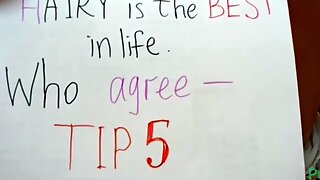 HAIRY is the BEST
in life.
Who agree —
TIP 5